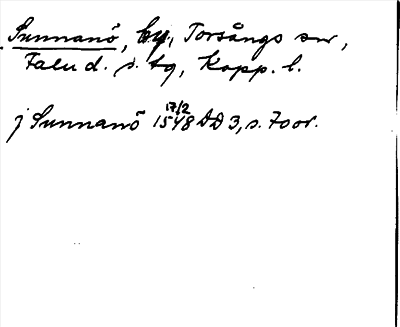 Sunnanö, by, Torsångs sn,
Falu d. s. tg, Kopp. l.
17/2
j Sunnanö 1548 DD 3, s. 70 or.